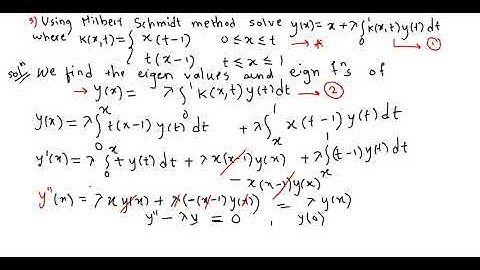 3) Using Hilbert Schmidt method solve y(x) = x + λ∫₀¹ k(x,t) y(t) dt
where k(x,t) = { x(t-1) 0 ≤ x ≤ t → *
t(x-1) t ≤ x ≤ 1 ①
solⁿ We find the eigen values and eign fⁿs of
→ y(x) = λ∫₀¹ k(x,t) y(t) dt → ②
y(x) = λ∫₀ˣ t(x-1) y(t) dt + λ∫ₓ¹ x(t-1) y(t) dt
y'(x) = λ∫₀ˣ t y(t) dt + λx(x-1) y(x) + λ∫ₓ¹ (t-1) y(t) dt
- x(x-1) y(x)
y''(x) = λ x y(x) + λ(-(x-1) y(x)) = λ y(x)
y'' - λy = 0 , y(0)